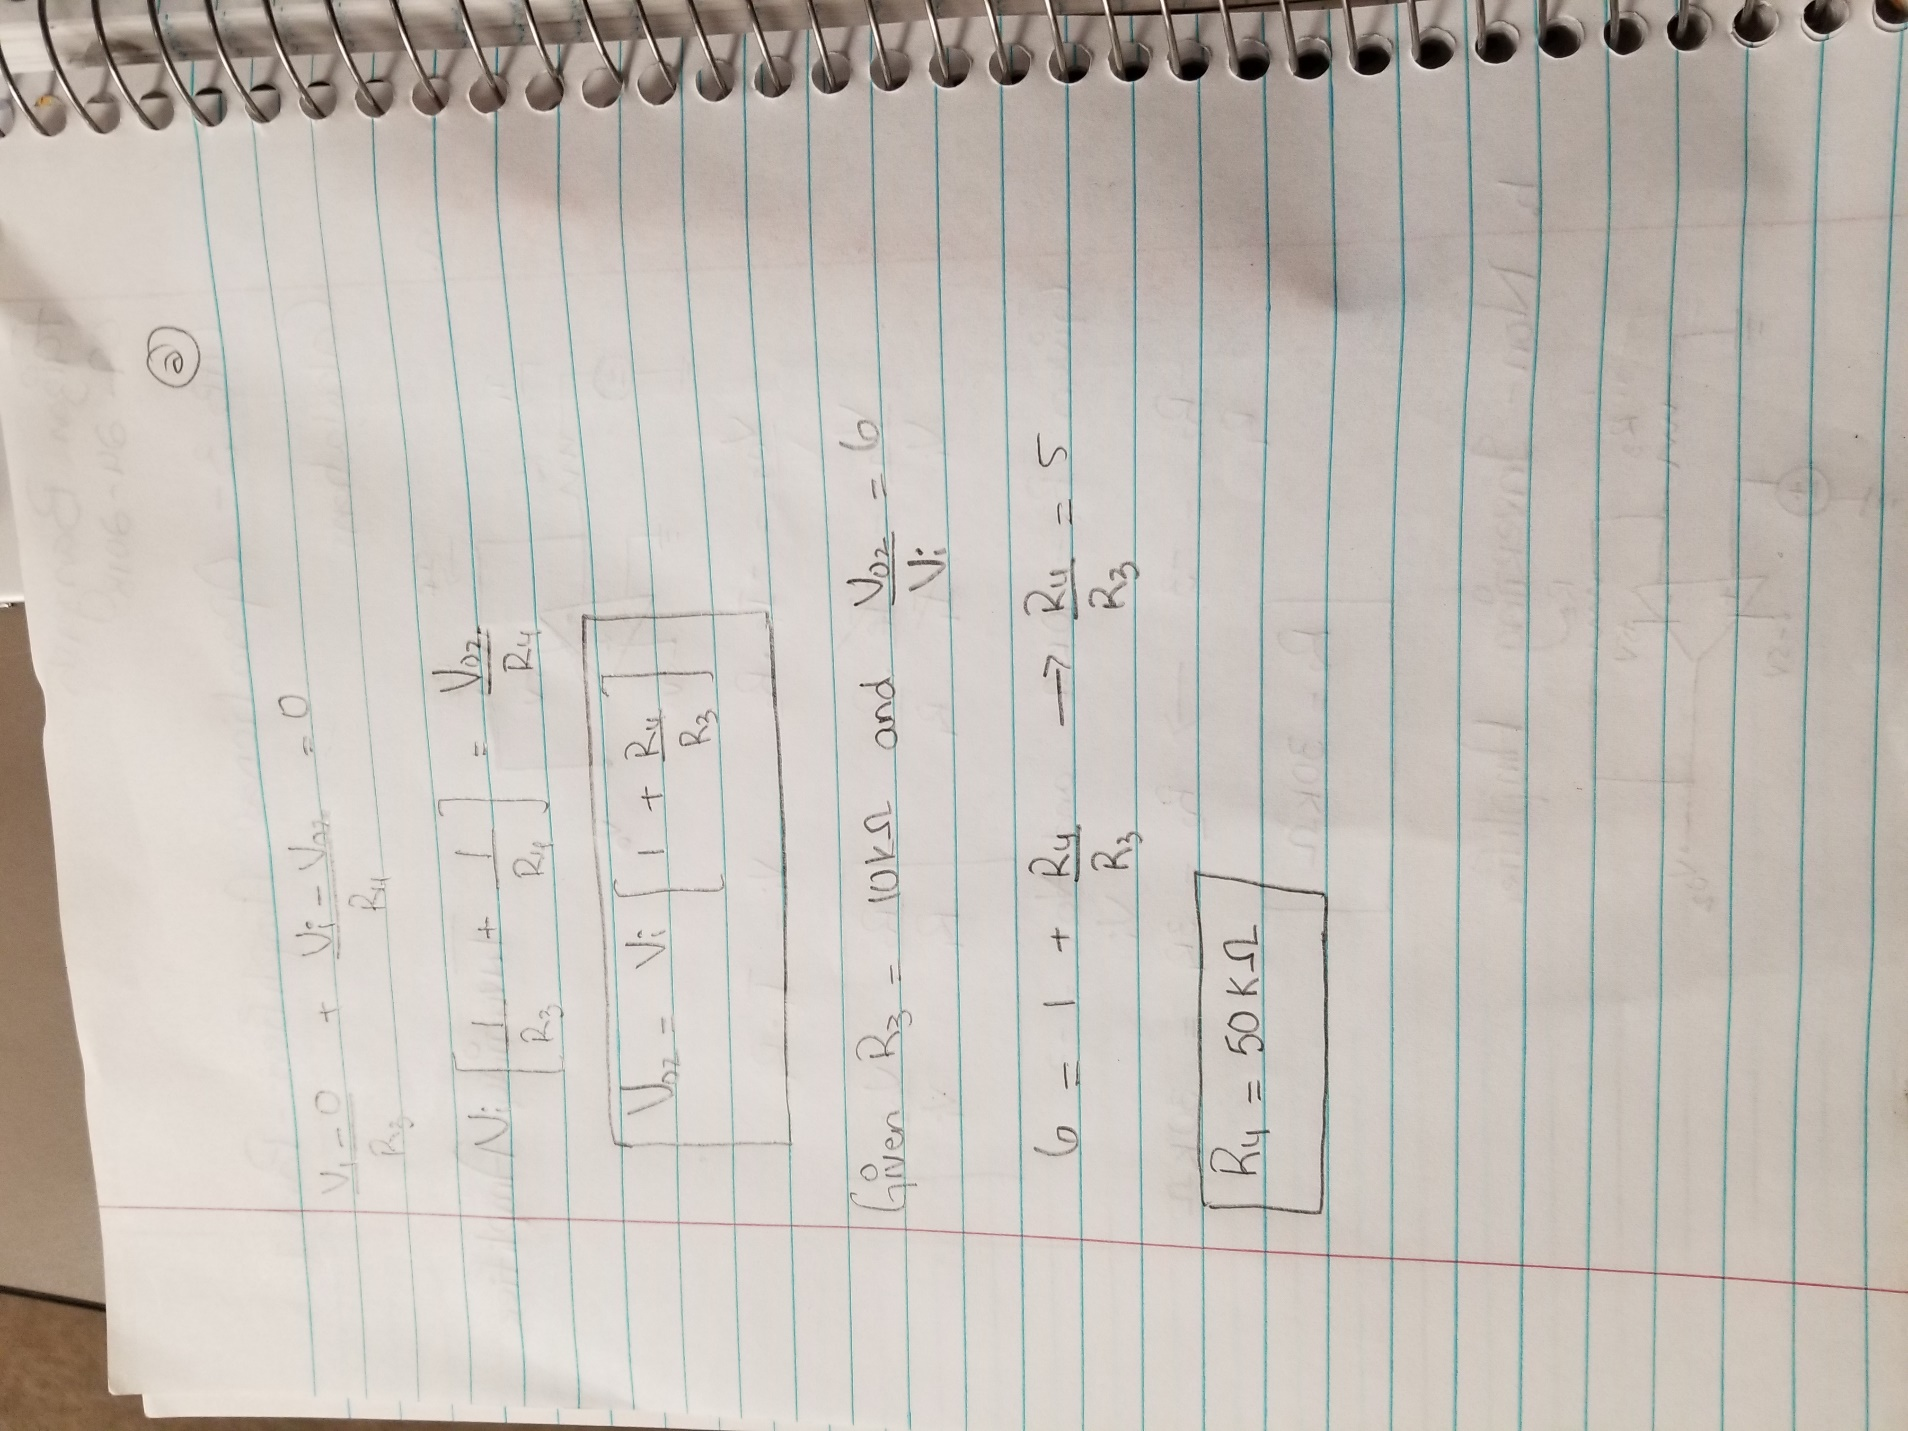 ②
Vi-0/R3 + Vi-Vo2/R4 = 0
Vi [1/R3 + 1/R4] = Vo2/R4
Vo2 = Vi [1 + R4/R3]
Given R3 = 10KΩ and Vo2/Vi = 6
6 = 1 + R4/R3 → R4/R3 = 5
R4 = 50KΩ